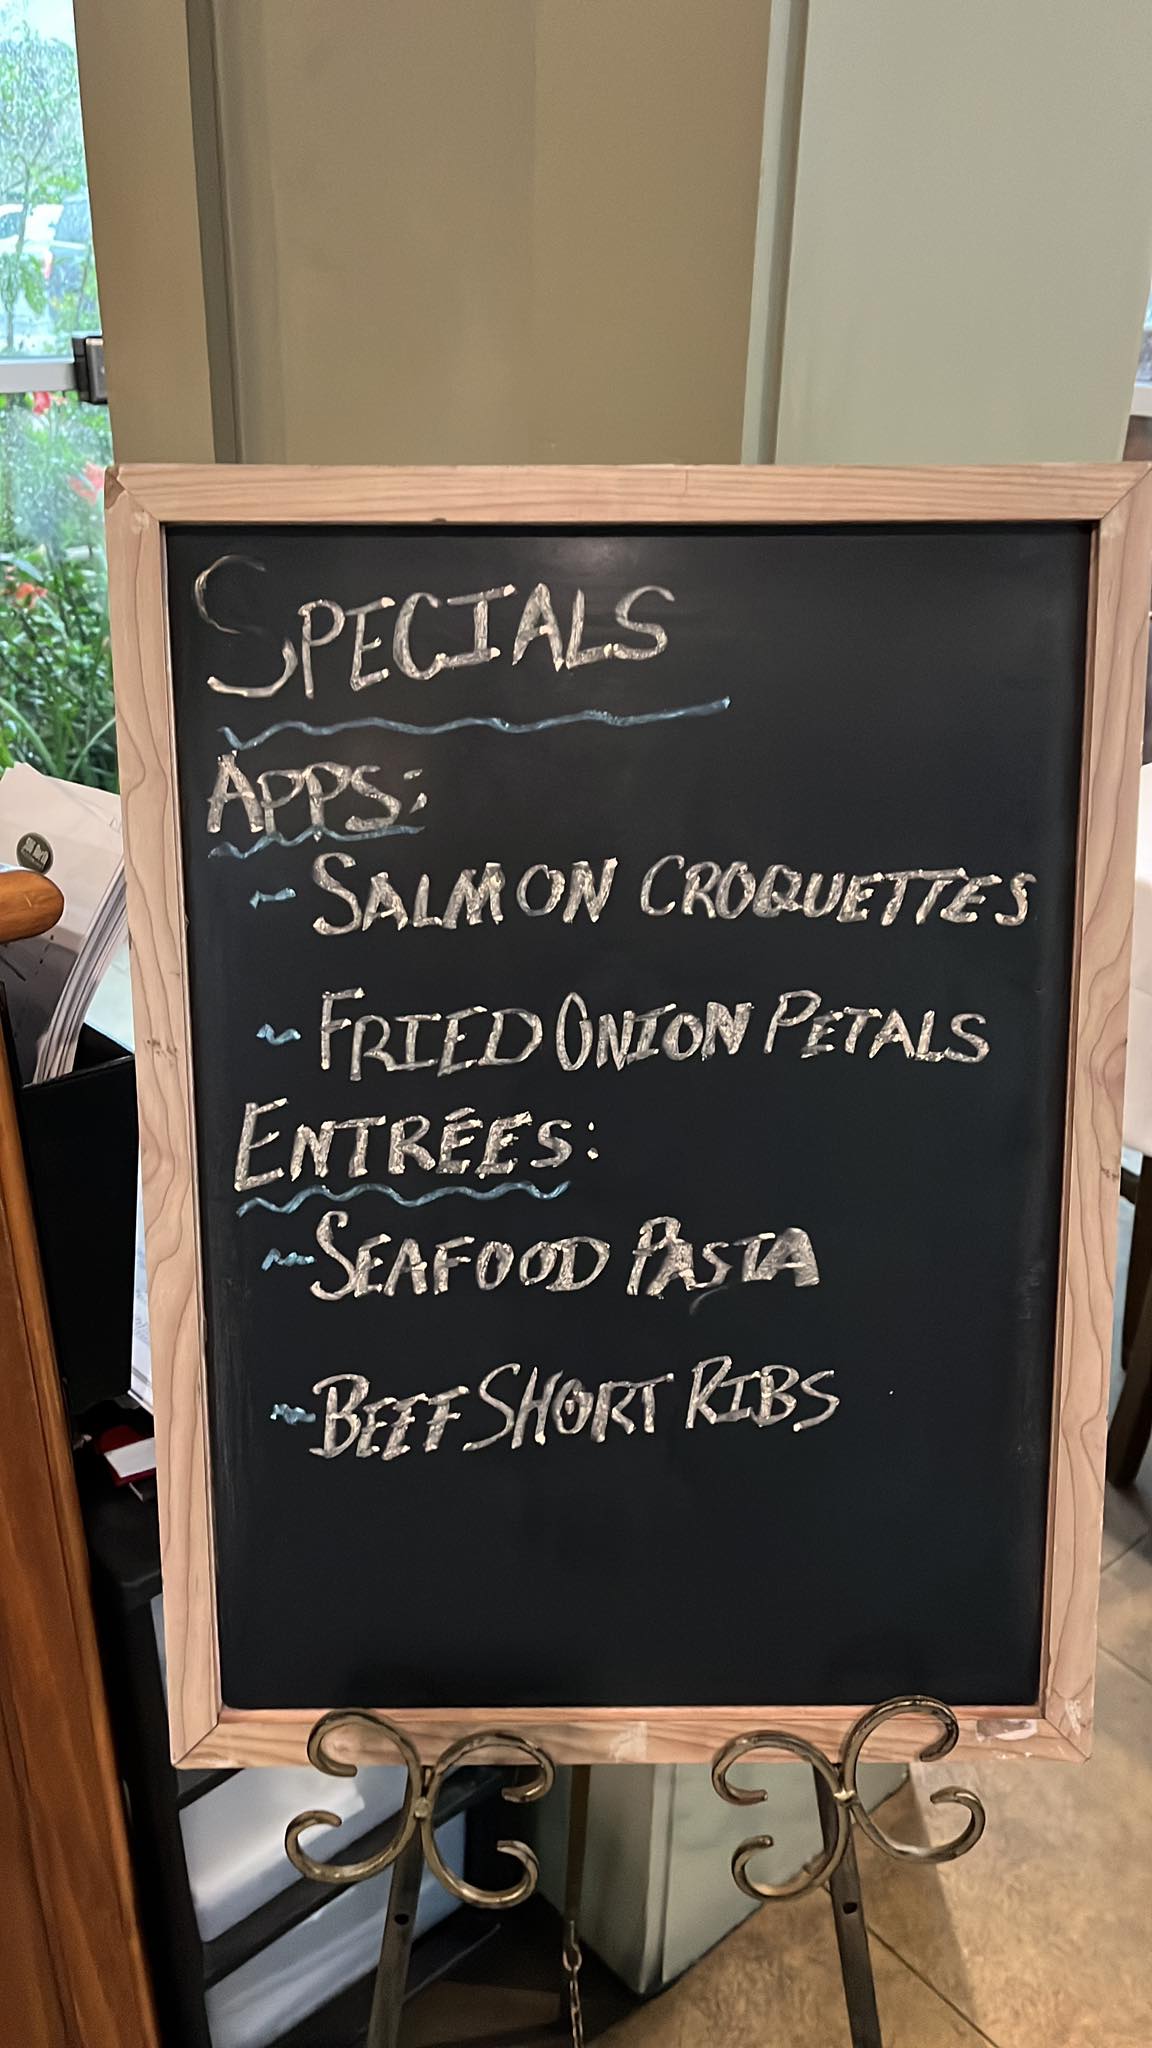 SPECIALS
APPS:
~ SALMON CROQUETTES
~ FRIED ONION PETALS
ENTRÉES:
~ SEAFOOD PASTA
~ BEEF SHORT RIBS